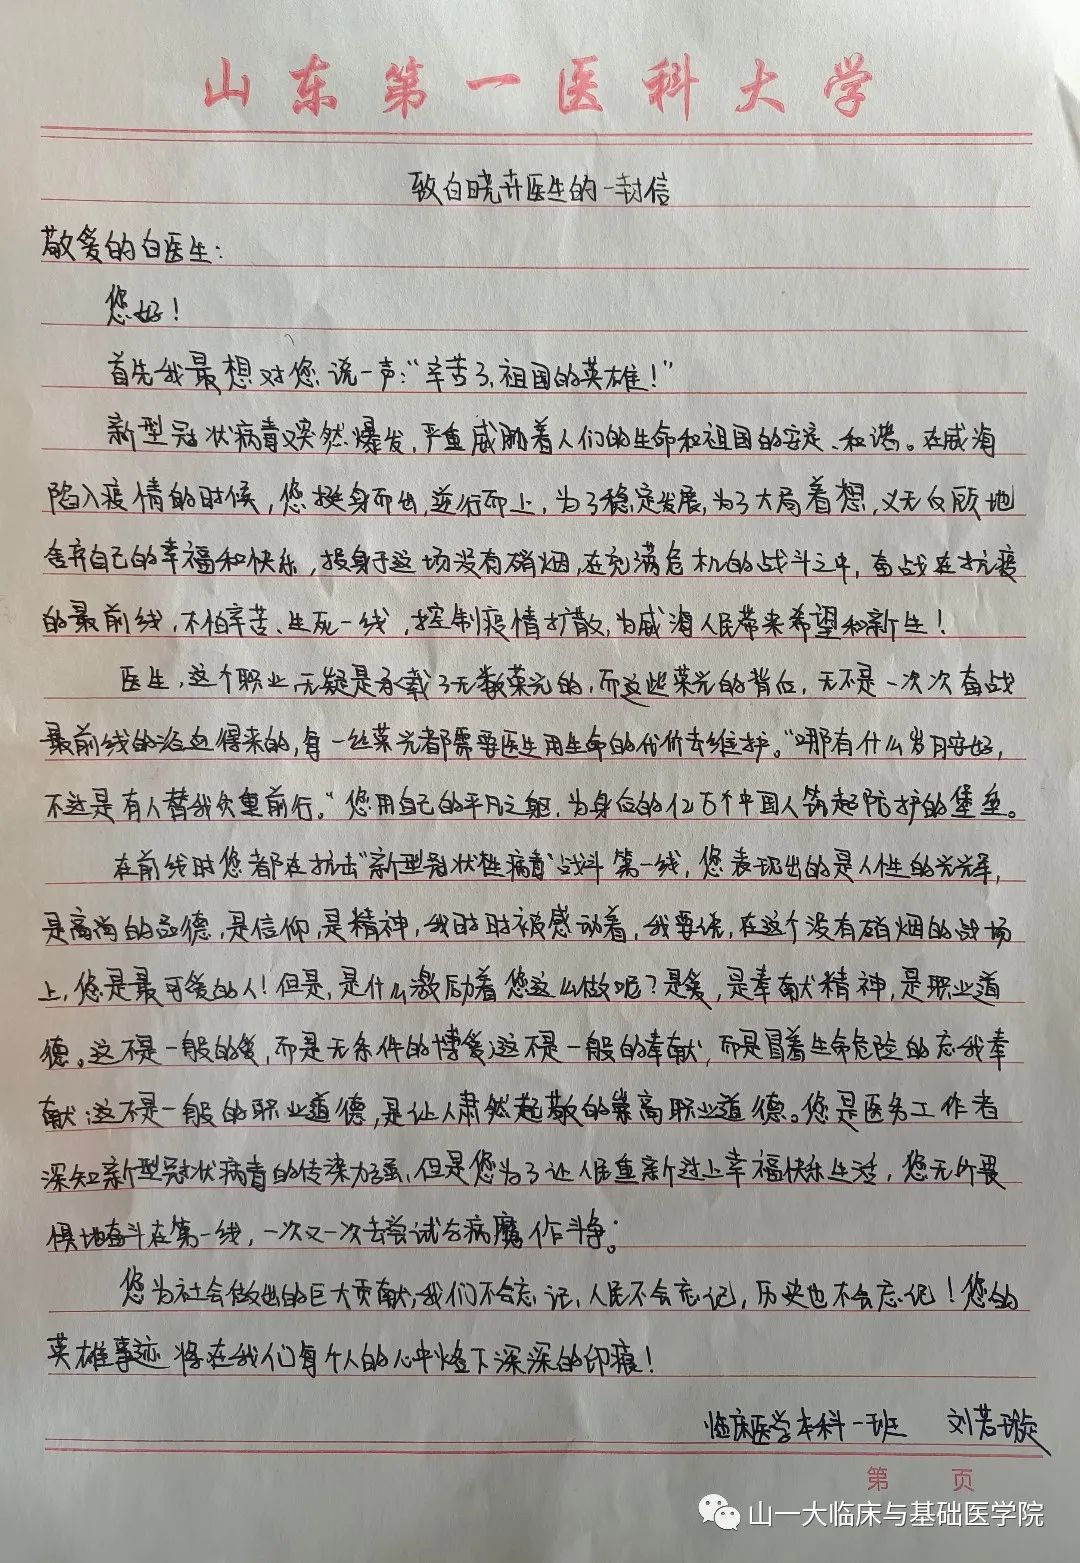 山东第一医科大学
致白晓卉医生的一封信
敬爱的白医生：
您好！
首先我最想对您说一声：“辛苦了，祖国的英雄！”
新型冠状病毒突然爆发，严重威胁着人们的生命和祖国的安定、和谐。在威海
陷入疫情的时候，您挺身而出，逆行而上，为了稳定发展，为了大局着想，义无反顾地
舍弃自己的幸福和快乐，投身于这场没有硝烟，在充满危机的战斗之中，奋战在抗疫
的最前线，不怕辛苦、生死一线，控制疫情扩散，为威海人民带来希望和新生！
医生，这个职业，无疑是承载了无数荣光的，而这些荣光的背后，无不是一次次奋战
最前线的浴血得来的，每一丝荣光都需要医生用生命的代价去维护。“哪有什么岁月安好，
不过是有人替我负重前行。”您用自己的平凡之躯，为身后的亿万个中国人筑起防护的堡垒。
在前线时您都在抗击“新型冠状性病毒”战斗第一线，您表现出的是人性的光辉，
是高尚的品德，是信仰，是精神，我时时被感动着，我要说，在这个没有硝烟的战场
上，您是最可爱的人！但是，是什么激励着您这么做呢？是爱，是奉献精神，是职业道
德。这不是一般的爱，而是无条件的博爱；这不是一般的奉献，而是冒着生命危险的忘我奉
献；这不是一般的职业道德，是让人肃然起敬的崇高职业道德。您是医务工作者
深知新型冠状病毒的传染力强，但是您为了让人民重新过上幸福快乐生活，您无所畏
惧地奋斗在第一线，一次又一次去尝试与病魔作斗争；
您为社会做出的巨大贡献，我们不会忘记，人民不会忘记，历史也不会忘记！您的
英雄事迹将在我们每个人的心中烙下深深的印痕！
临床医学本科一班 刘若璇
第 页
山一大临床与基础医学院